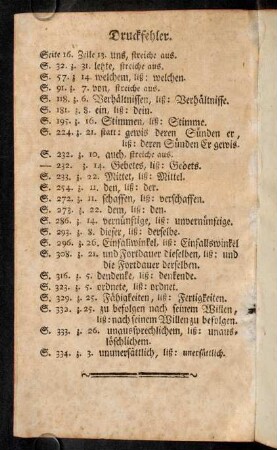 Druckfehler.
Seite 16. Zeile 13. uns, streiche aus.
S. 32. z. 31. letzte, streiche aus.
S. 57. z. 14. welchem, liß: welchen.
S. 91. z. 7. von, streiche aus.
S. 118. z. 6. Verhältnissen, liß: Verhältnisse.
S. 181. z. 8. ein, liß: dein.
S. 195. z. 16. Stimmen, liß: Stimme.
S. 224. z. 21. statt: gewis deren Sünden er,
liß: deren Sünden Er gewis.
S. 232. z. 10. auch, streiche aus.
— 232. z. 14. Gebetes, liß: Gebets.
S. 233. z. 22. Mittet, liß: Mittel.
S. 254. z. 11. den, liß: der.
S. 272. z. 11. schaffen, liß: verschaffen.
S. 273. z. 22. dem, liß: den.
S. 286. z. 14. vernünftige, liß: unvernünftige.
S. 293. z. 8. dieser, liß: derselbe.
S. 296. z. 26. Einfallwinkel, liß: Einfallswinkel
S. 308. z. 21. und Fortdauer dieselben, liß: und
die Fortdauer derselben.
S. 316. z. 5. dendenke, liß: denkende.
S. 323. z. 5. ordnete, liß: ordnet.
S. 329. z. 25. Fähigkeiten, liß: Fertigkeiten.
S. 332. z. 25. zu befolgen nach seinem Willen,
liß: nach seinem Willen zu befolgen.
S. 333. z. 26. unaussprechlichem, liß: unaus-
löschlichem.
S. 334. z. 3. unmersättlich, liß: unersättlich.